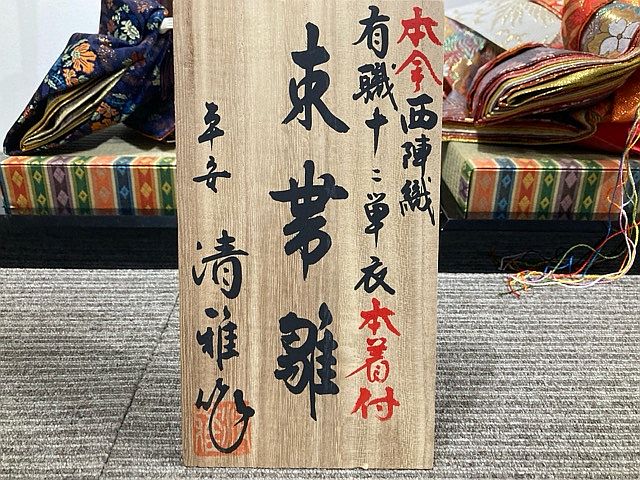 本金西陣織
有職十二単衣本着付
束帯雛
平安
清雅作